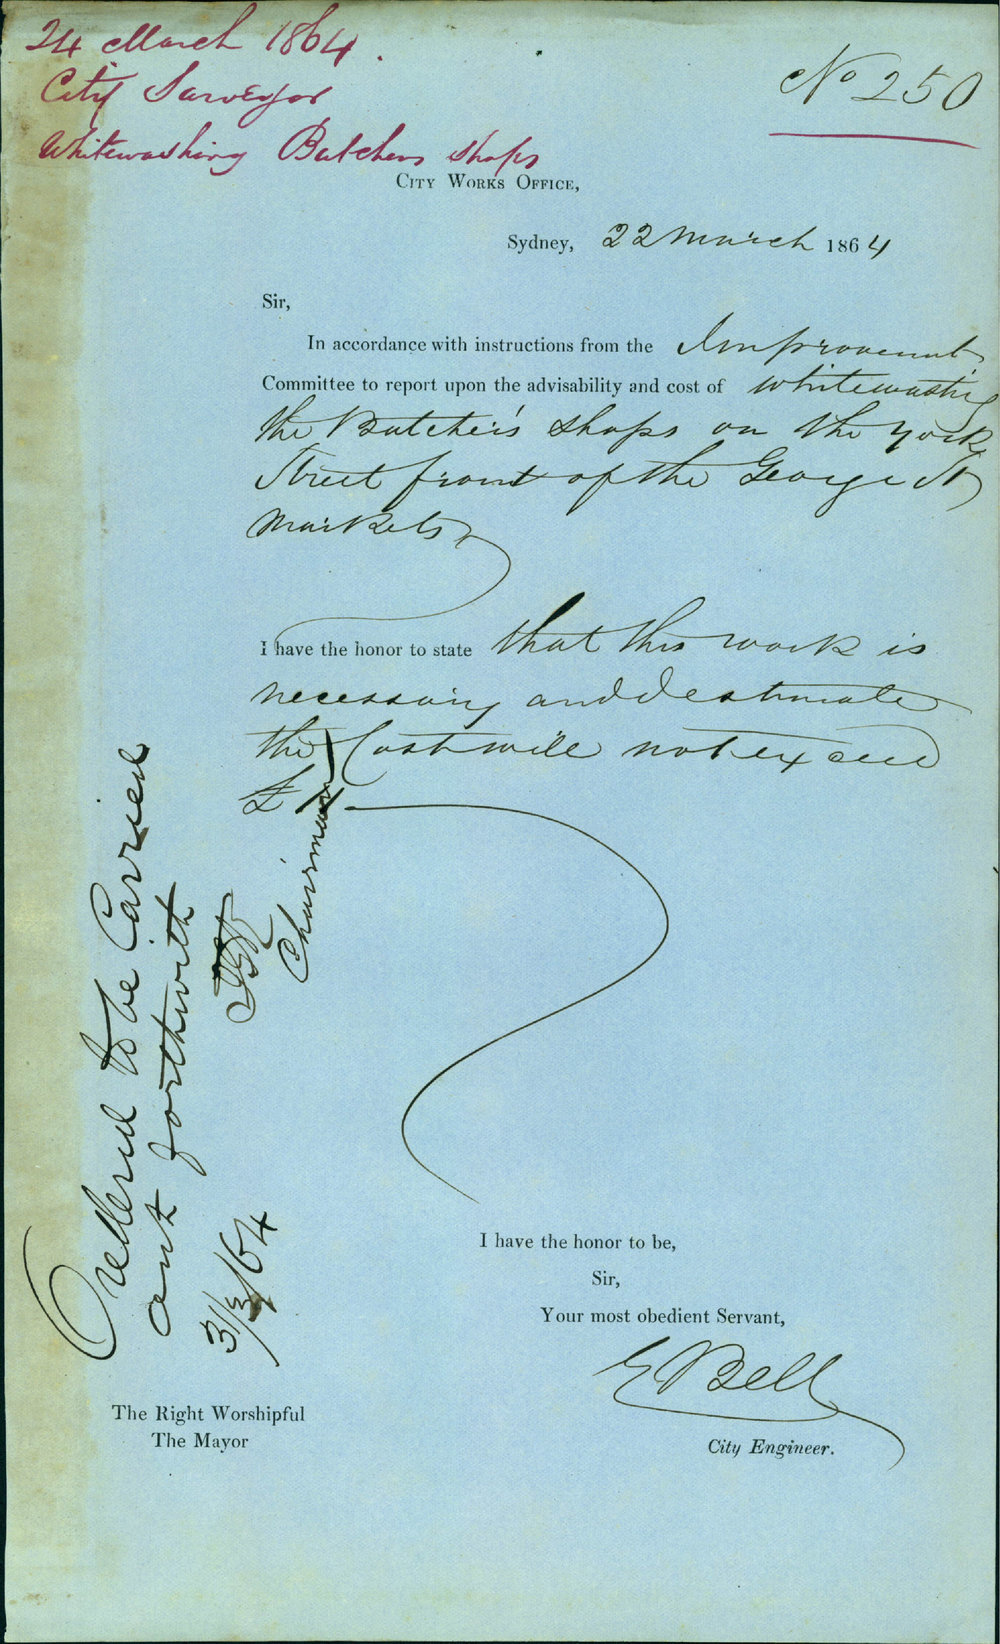 24 March 1864.
City Surveyor
Whitewashing Butchers shops
No 250
CITY WORKS OFFICE,
Sydney, 22 March 1864
Sir,
In accordance with instructions from the Improvement
Committee to report upon the advisability and cost of whitewashing
the Butcher's shops on the York
Street front of the George St
Markets
I have the honor to state that this work is
necessary and I estimate
the Cost will not exceed
£
Ordered to be Carried
out forthwith
Chairman
31/3/64
I have the honor to be,
Sir,
Your most obedient Servant,
E Bell
City Engineer.
The Right Worshipful
The Mayor